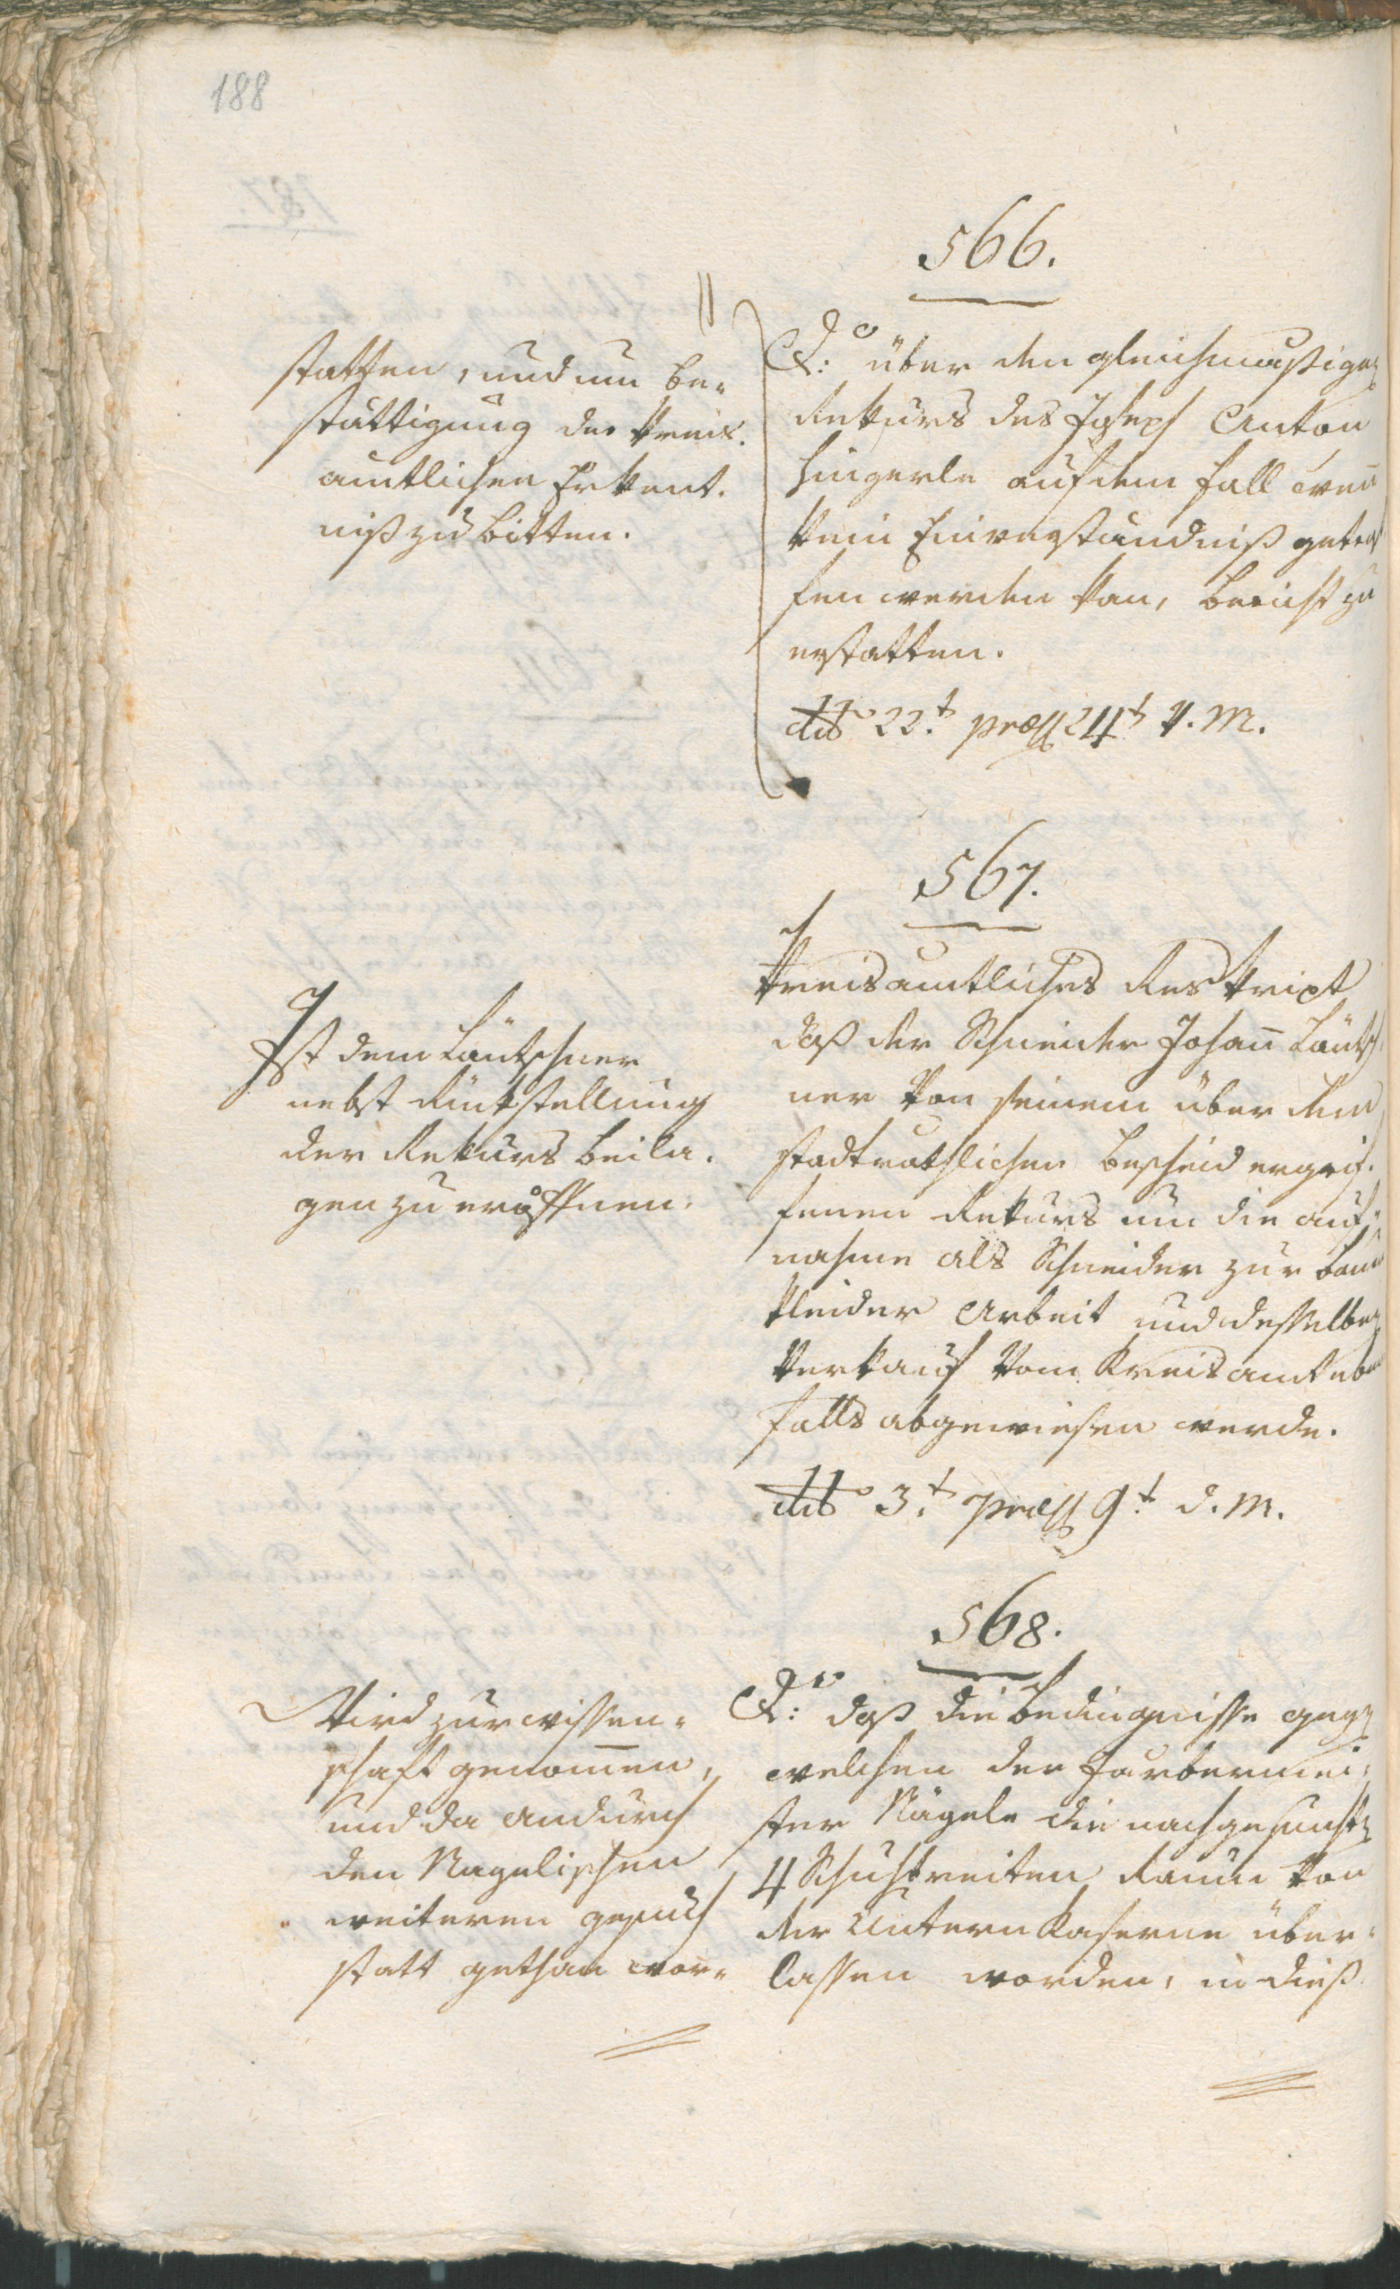 188
566.
statten, und um be-
stättigung der kreis-
amtlichen Erkent-
niß zu bitten.
Do: über den gleichmäßigen
Rekurs des Joseph Anton
Zingerle auf dem Fall wenn
kein Einverständniß getrof
fen werden kan, Bericht zu
erstatten.
dto 22t. präs 24t. v. M.
567.
Ist dem Läntschner
nebst Rückstellung
der Rekurs beila-
gen zu eröffnen.
Kreisamtliches Reskript
daß der Schneider Johann Läntsch
ner von seinem über dem
stadträthlichen Bescheid ergrif-
fenen Rekurs um die auf-
nahme als Schneider zur
kleider Arbeit und desselben
Verkauf vom Kreisamt eben
falls abgewiesen werde.
dto 3t. präs 9t. d. M.
568.
Wird zur wissen-
schaft genommen,
und da andurch
den Nagelischen
weiteren gesuch
statt gethan wor-
Do: daß die Bedingnisse gegen
welchen der Farbermei-
ster Nägele die nachgesuchten
4 Schuhbreiten Raum von
der Untern Kaserne über-
lassen worden, in dieß